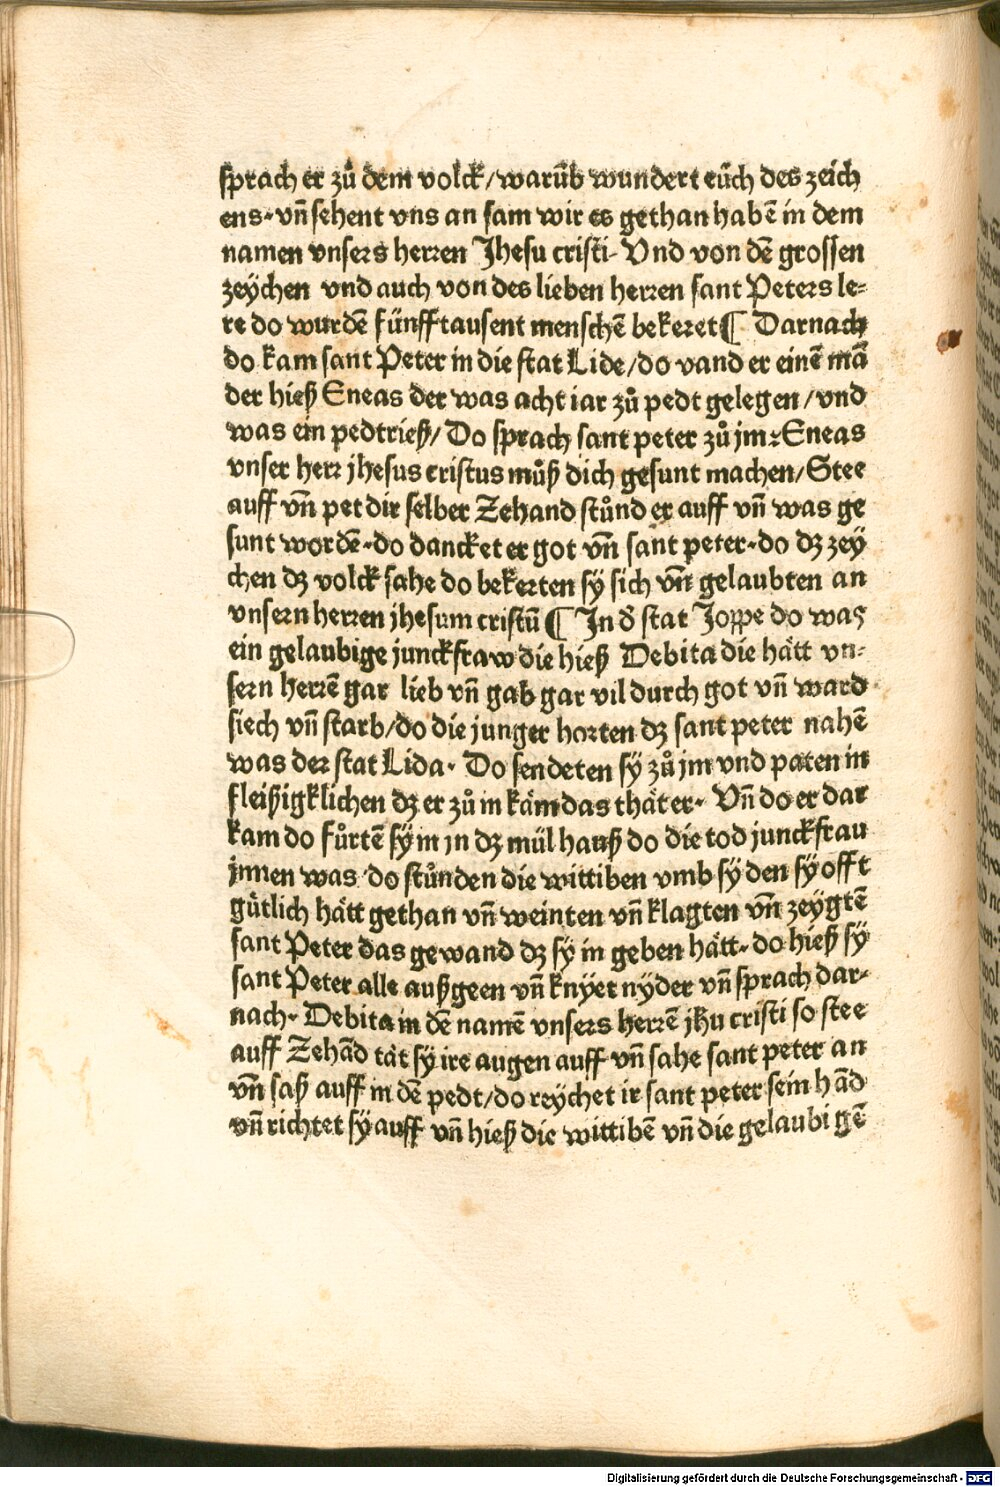 sprach er zů dem volck/warūb wundert eüch des zeich
ens·vn̄ sehent vns an sam wir es gethan habē in dem
namen vnsers herren Jhesu cristi· Vnd von dē grossen
zeÿchen vnd auch von des lieben herren sant Peters le⸗
re do wurdē fünfftausent menschē bekeret¶ Darnach
do kam sant Peter in die stat Lide/do vand er einē mā
der hieß Eneas der was acht iar zů pedt gelegen/vnd
was ein pedtrieß/Do sprach sant peter zů jm·Eneas
vnser herr jhesus cristus můß dich gesunt machen/Stee
auff vn̄ pet dir selber Zehand stůnd er auff vn̄ was ge
sunt wordē·do dancket er got vn̄ sant peter·do dz zey
chen dz volck sahe do bekerten sÿ sich vn̄ gelaubten an
vnsern herren jhesum cristū¶ In d̕ stat Joppe do was
ein gelaubige junckfraw die hieß Debita die hätt vn⸗
sern herrē gar lieb vn̄ gab gar vil durch got vn̄ ward
siech vn̄ starb/do die junger horten dz sant peter nahē
was der stat Lida· Do sendeten sÿ zů jm vnd paten in
fleißigklichen dz er zů in käm das thät er· Vn̄ do er dar
kam do fůrtē sÿ in jn dz mül hauß do die tod junckfrau
jnnen was·do stůnden die wittiben vmb sÿ den sÿ offt
gütlich hätt gethan vn̄ weinten vn̄ klagten vn̄ zeygtē
sant Peter das gewand dz sÿ in geben hätt·do hieß sÿ
sant Peter alle außgeen vn̄ knÿet nÿder vn̄ sprach dar⸗
nach· Debita in dē namē vnsers herrē jhu cristi so stee
auff Zehād tät sÿ ire augen auff vn̄ sahe sant peter an
vn̄ saß auff in dē pedt/do reÿchet ir sant peter sein hād
vn̄ richtet sÿ auff vn̄ hieß die wittibē vn̄ die gelaubigē
Digitalisierung gefördert durch die Deutsche Forschungsgemeinschaft - DFG